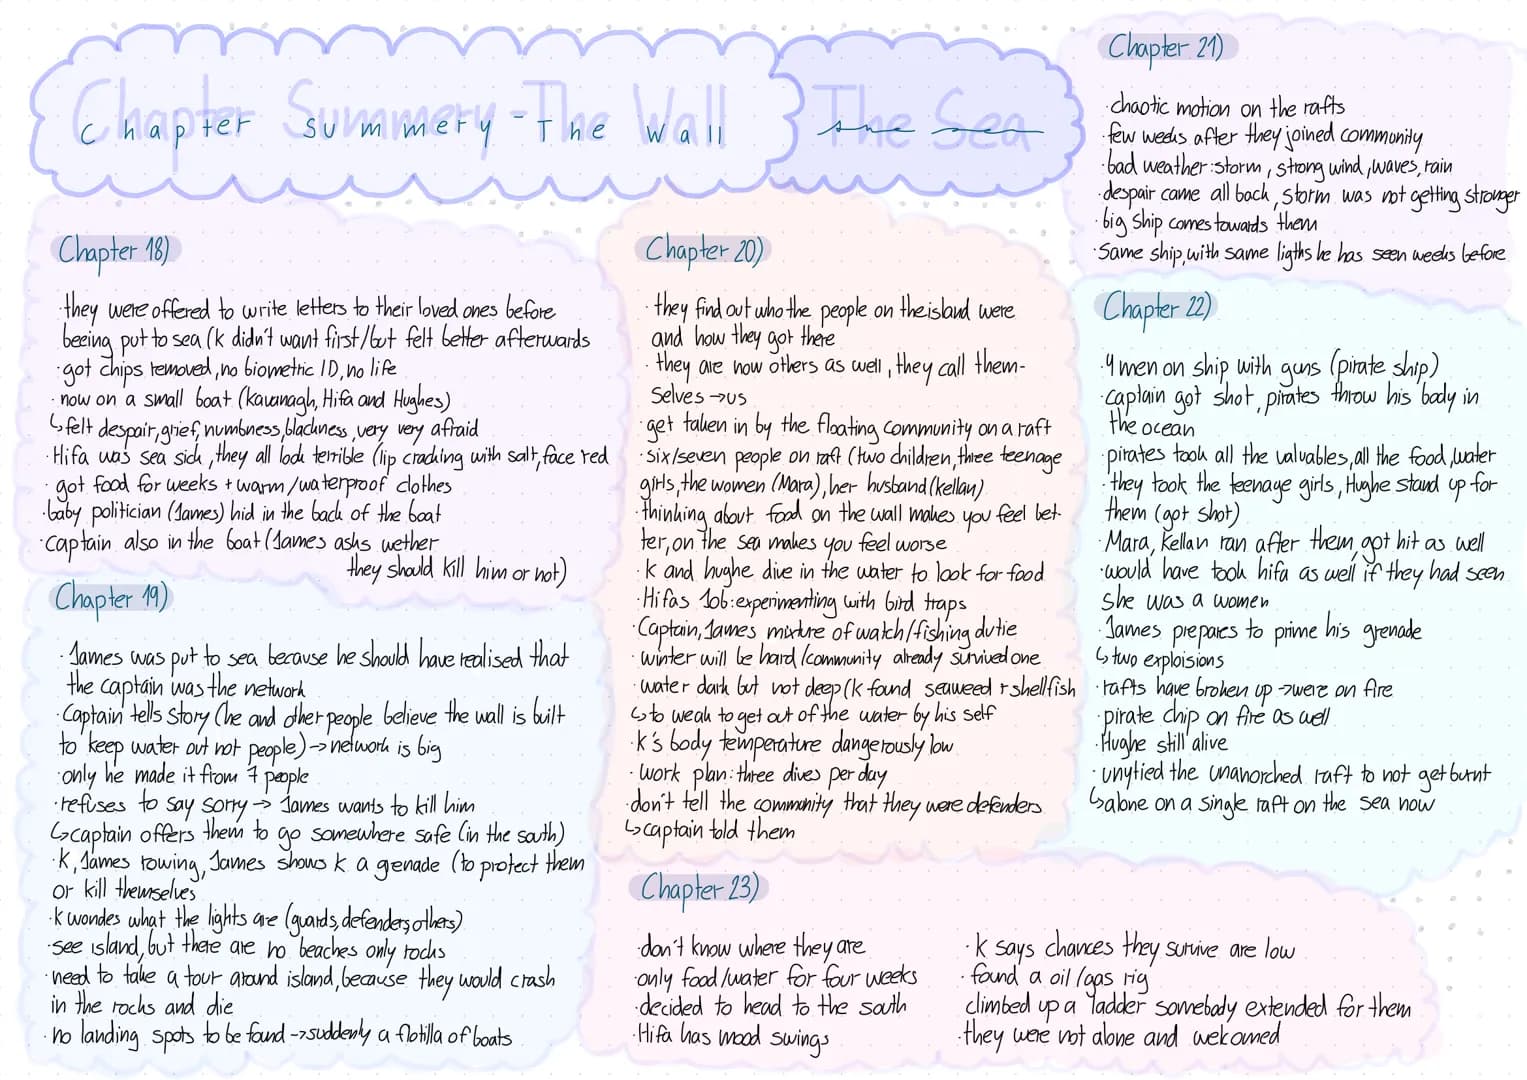 Chapter Summery - The Wall
The Sea
Chapter 18)
·they were offered to write letters to their loved ones before
beeing put to sea (k didn't want first/but felt better afterwards
·got chips removed, no biometric ID, no life
·now on a small boat (kavanagh, Hifa and Hughes)
↳felt despair, grief, numbness, blackness, very very afraid
·Hifa was sea sick, they all look terrible (lip cracking with salt, face red
·got food for weeks + warm/waterproof clothes
·baby politician (James) hid in the back of the boat
·captain also in the boat (James asks wether
they should kill him or not)
Chapter 19)
·James was put to sea because he should have realised that
the captain was the network
·Captain tells story (he and other people believe the wall is built
to keep water out not people) → network is big
·only he made it from 7 people
·refuses to say sorry → James wants to kill him
↳captain offers them to go somewhere safe (in the south)
·K, James rowing, James shows k a grenade (to protect them
or kill themselves
·k wondes what the lights are (guards, defenders, others)
·see island, but there are no beaches only rocks
·need to take a tour around island, because they would crash
in the rocks and die
·no landing spots to be found → suddenly a flotilla of boats
Chapter 20)
·they find out who the people on the island were
and how they got there
·they are now others as well, they call them-
selves → us
·get taken in by the floating community on a raft
·six/seven people on raft (two children, three teenage
girls, the women (Mara), her husband (kellan)
·thinking about food on the wall makes you feel bet-
ter, on the sea makes you feel worse
·k and hughe dive in the water to look for food
·Hifas Job: experimenting with bird traps
·Captain, James mixture of watch/fishing dutie
·winter will be hard/community already survived one
·water dark but not deep (k found seaweed + shellfish
↳to weak to get out of the water by his self
·k's body temperature dangerously low
·work plan: three dives per day
·don't tell the community that they were defenders
↳captain told them
Chapter 21)
·chaotic motion on the rafts
·few weeks after they joined community
·bad weather: storm, strong wind, waves, rain
·despair came all back, storm was not getting stronger
·big ship comes towards them
·Same ship, with same ligths he has seen weeks before
Chapter 22)
·4 men on ship with guns (pirate ship)
·captain got shot, pirates throw his body in
the ocean
·pirates took all the valuables, all the food, water
·they took the teenage girls, Hughe stand up for
them (got shot)
·Mara, Kellan ran after them, got hit as well
·would have took hifa as well if they had seen
she was a women
·James prepares to prime his grenade
↳two exploisions
·rafts have broken up → were on fire
·pirate chip on fire as well
·Hughe still alive
·unytied the unanorched raft to not get burnt
↳alone on a single raft on the sea now
Chapter 23)
·don't know where they are
·only food/water for four weeks
·decided to head to the south
·Hifa has mood swings
·K says chances they survive are low
·found a oil/gas rig
climbed up a ladder somebody extended for them
·they were not alone and welcomed